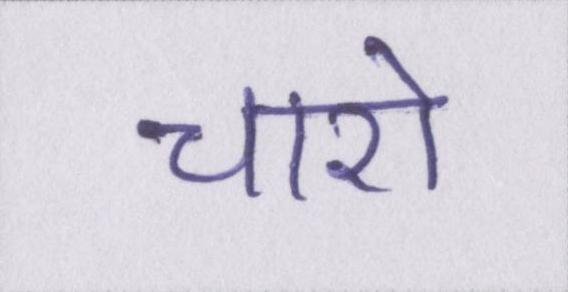 चारो